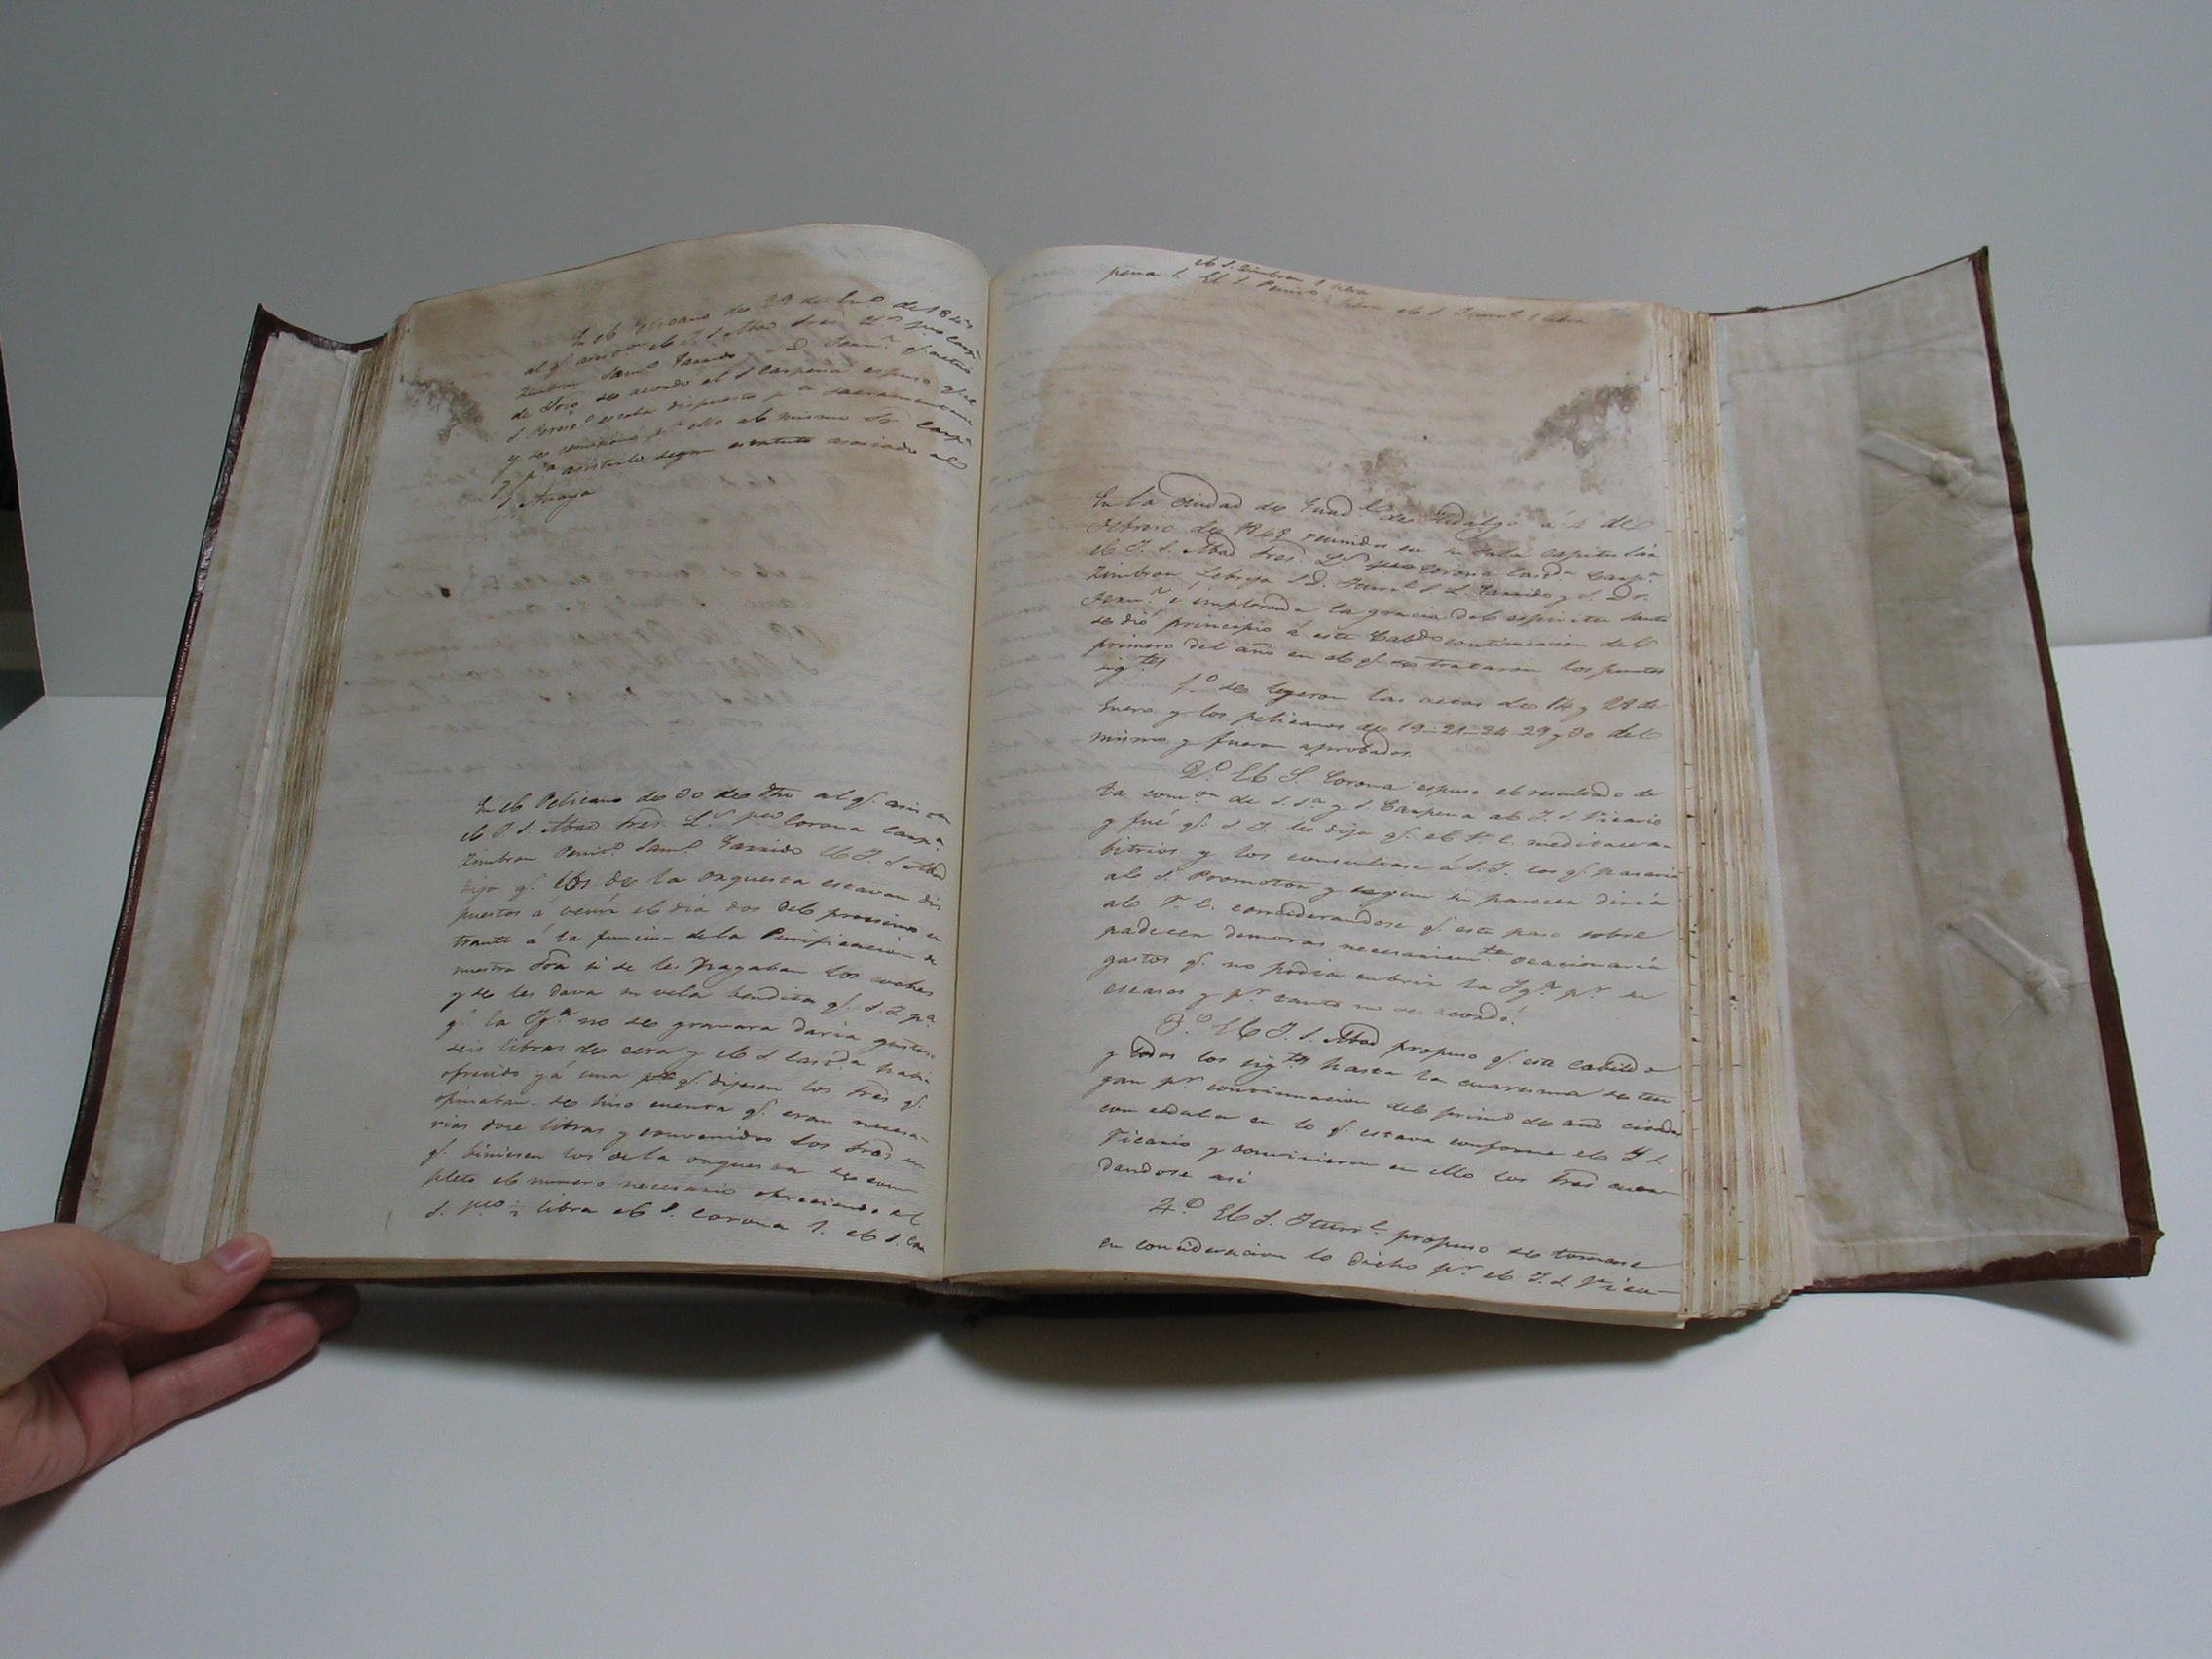 En el Pelicano de 29 de En.o de 184
al q.e el Y. S. Abad Sres.
Zimbron Sam.o Garrido
de Frio se acordó el S Carpena espuso q.e el
S estaba dispuesto p.a sacramentarse
y se p.a ello al mismo Sr. Carp.a
y p.a asistirlo segun estatuto asociado al
S. Araga
En el Pelicano de 30 de En.o al q.e asis
el Y S. Abad Sres. L.s p.co Corona Carp.a
Zimbron Sam.o Garrido El Y. S Abad
dijo q.e los de la orquesta estavan dis
puestos á venir el dia dos del procsimo en
trante á la funcion de la Purificacion de
nuestra Sra si se les pagaban los coches
y se les dava su vela bendita q.e S. Y. p.a
q.e la Yg.a no se gravara daria gustoso
seis libras de cera y el S Cast.da havia
ofrecido yá una p.a q.e dijesen los Sres q.e
opinaban. se hiso cuenta q.e eran necesa-
rias doce libras y convenidos los Sres en
q.e biniesen los de la orquesta se com
pletó el numero necesario ofreciendo el
S. p.co ½ libra el S. Corona 1. el S. Car
pena 1. El S. el S. Zimbron 1 libra el S Yturr.e 1 libra
En la Ciudad de Guad.e de Hidalgo á de
Febrero de 1849 reunidos en su Sala capitular
el Y. S. Abad Sres. L.s Corona Cast.da Carp.a
Zimbron Lebrija S D. Yturr.e S L Garrido y S. Dr.
é implorada la gracia del espiritu santo
se dió principio á este Cab.do continuacion del
primero del año en el q.e se trataron los puntos
sig.tes
1.o se leyeron las actas de 14 y 28 de
Enero y los pelicanos de 19-21-24 29 y 30 del
mismo y fueron aprobados.
2.o El S. Corona espuso el resultado de
la com.on de S. S.a y S. Carpena al Y. S. Vicario
y fué q.e S. Y. les dijo q.e el V. C. meditara ar-
bitrios y los consultase á S. Y. los q.e pasaria
al S. Promotor y segun su parecer diria
al V. C. considerandose q.e este paso sobre
padecer demoras necesariam.te ocacionaria
gastos q.e no podia cubrir la Yg.a p.r su
escases y p.r tanto no se acordó.
3.o El Y. S. Abad propuso q.e este cabildo
y todos los sig.tes hasta la cuaresma se ten
gan p.r continuacion del primo de año citados
con cedula en lo q.e estava conforme el Y. S.
Vicario y convinieron en ello los Sres acor-
dandose asi
4.o El S. Yturr.e propuso se tomase
en consideracion lo dicho p.r el Y. S. Vica-